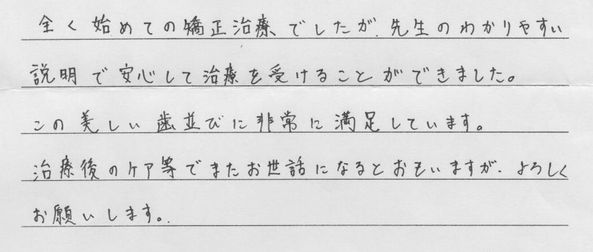 全く始めての矯正治療でしたが、先生のわかりやすい
説明で安心して治療を受けることができました。
この美しい歯並びに非常に満足しています。
治療後のケア等でまたお世話になるとおもいますが、よろしく
お願いします。